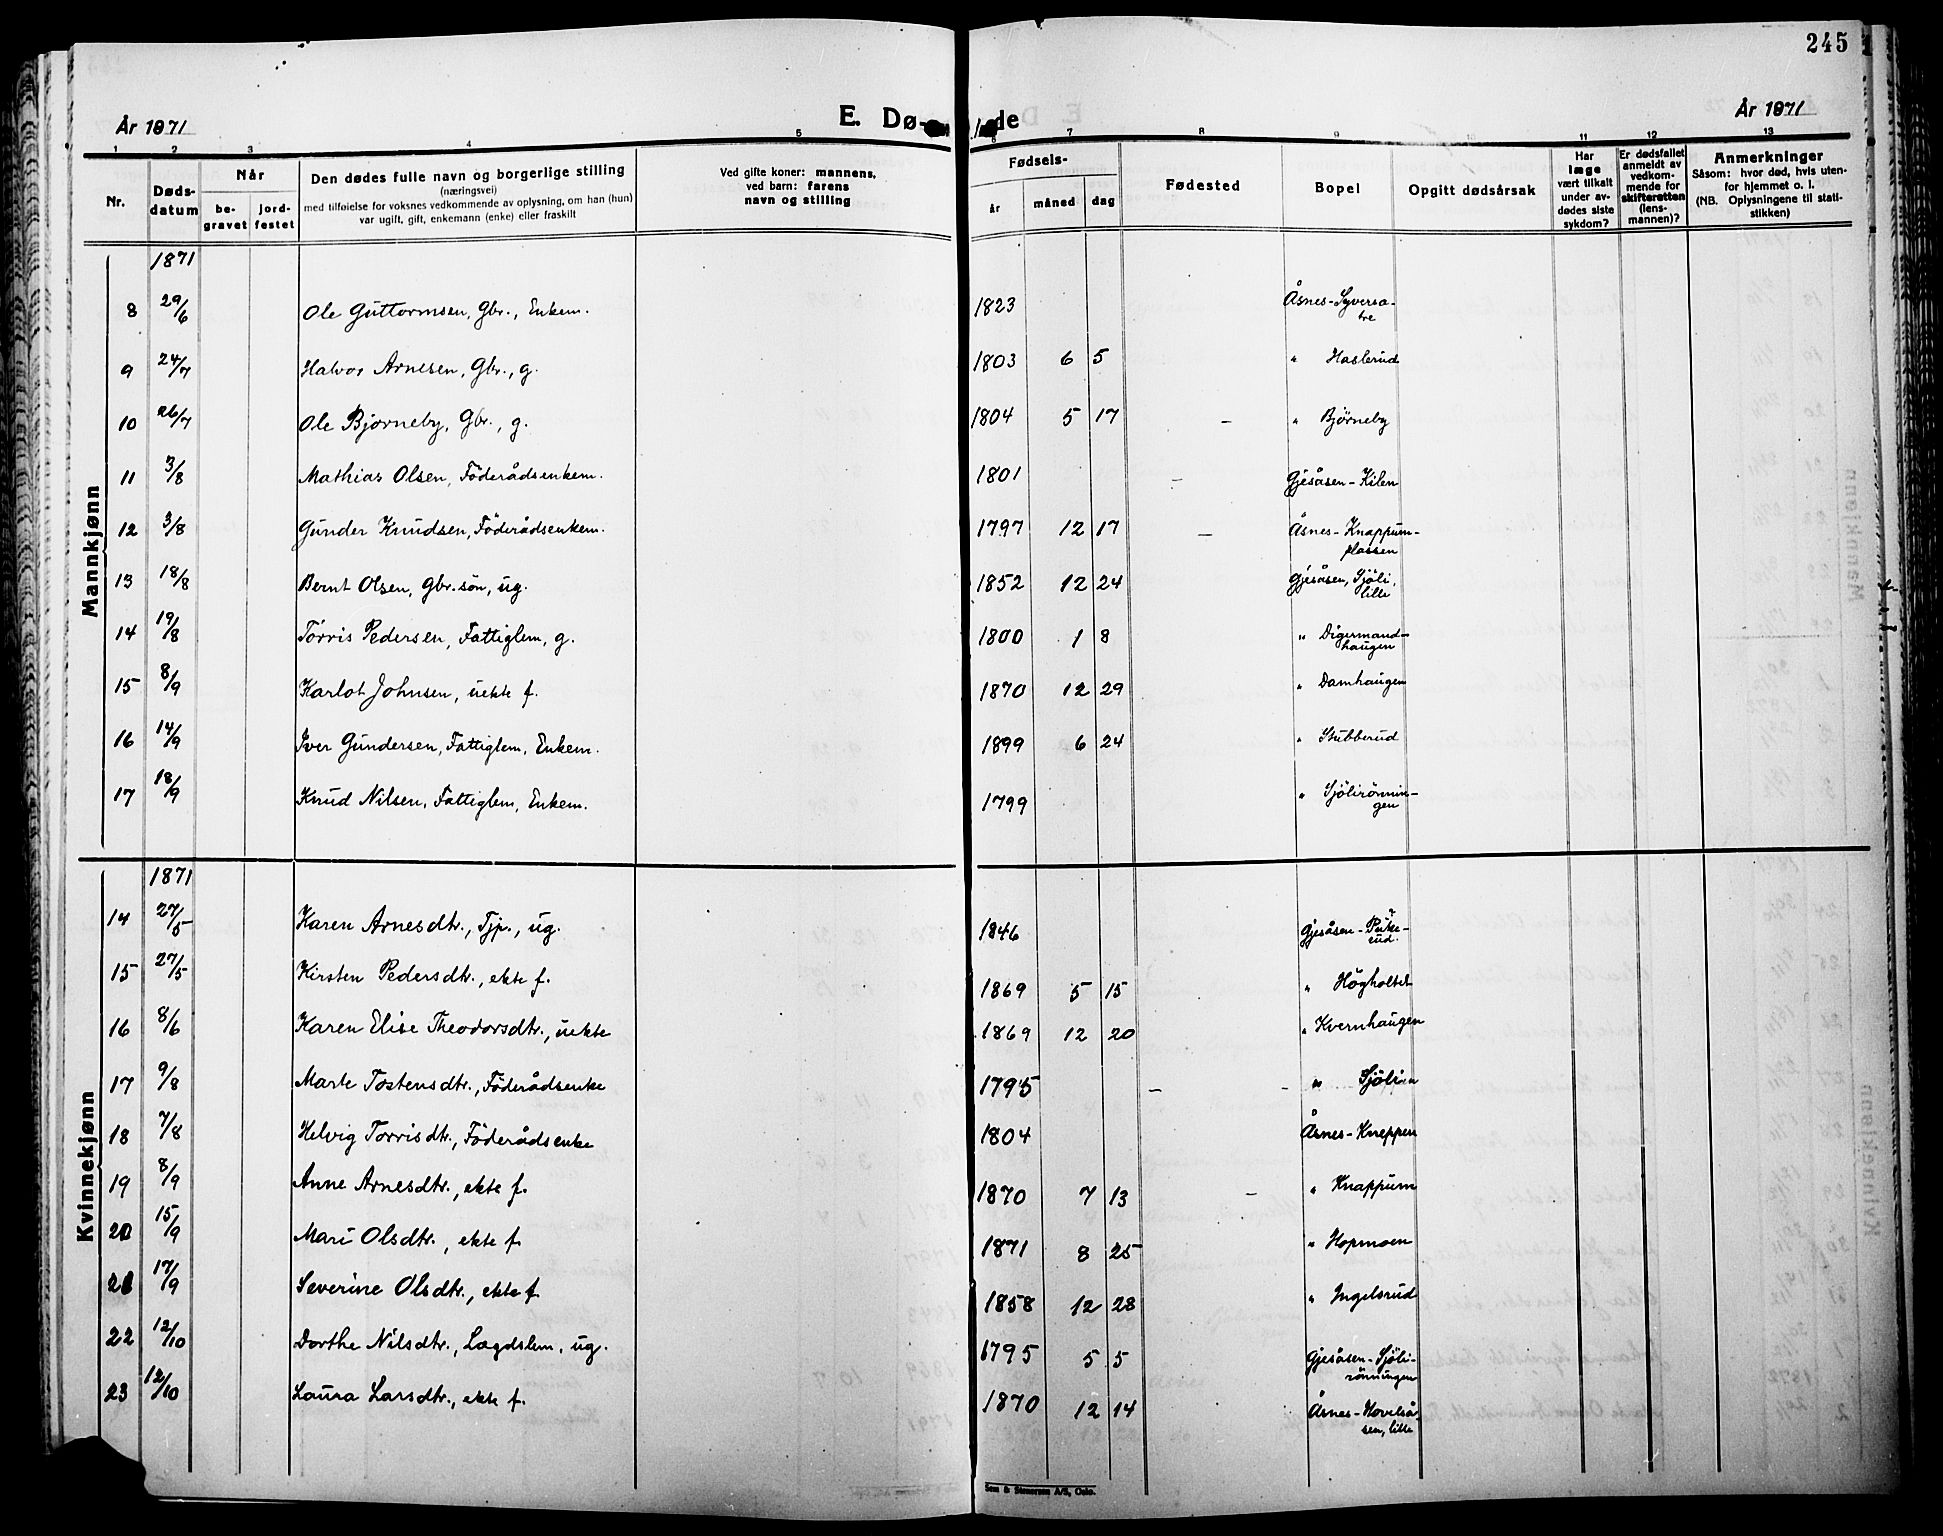 245
År 1871
E. Dø-
de
År 1871
1 2 3 4 5 6 7 8 9 10 11 12 13
Nr.
Døds-
datum
Når
be-
gravet
jord-
festet
Den dødes fulle navn og borgerlige stilling
(næringsvei)
med tilføielse for voksnes vedkommende av oplysning, om han (hun)
var ugift, gift, enkemann (enke) eller fraskilt
Ved gifte koner: mannens,
ved barn: farens
navn og stilling
Fødsels-
år måned dag
Fødested
Bopel
Opgitt dødsårsak
Har
læge
vært tilkalt
under av-
dødes siste
sykdom?
Er dødsfallet
anmeldt av
vedkom-
mende for
skifteretten
(lens-
mannen)?
Anmerkninger
Såsom: hvor død, hvis uten-
for hjemmet o. l.
(NB. Oplysningene til stati-
stikken)
Mannkjønn
1871
8 29/6 Ole Guttormsen, Gbr., Enkem. 1823 Åsnes-Syversæ-
tre
9 24/7 Halvor Arnesen, Gbr., g. 1803 6 5 " Haslerud
10 26/7 Ole Bjørneby, Gbr., g. 1804 5 17 - " Bjørneby
11 3/8 Mathias Olsen, Föderådsenkem. 1801 - Gjesåsen-Kilen
12 3/8 Gunder Knudsen, Föderådsenkem. 1797 12 17 - Åsnes-Knappum-
plassen
13 18/8 Bernt Olsen, Gbr.sön, ug. 1852 12 24 Gjesåsen, Sjöli,
lille
14 19/8 Torris Pedersen, Fattiglem, g. 1800 1 8 " Digermand-
haugen
15 8/9 Karlot Johnsen, uekte f. 1870 12 29 " Damhaugen
16 14/9 Iver Gundersen, Fattiglem, Enkem. 1899 6 24 " Stubberud
17 18/9 Knud Nilsen, Fattiglem, Enkem. 1799 " Sjölirönnin-
gen
Kvinnekjønn
1871
14 27/5 Karen Arnesdtr., Tjp., ug. 1846 Gjesåsen-Puke-
rud.
15 27/5 Kirsten Pedersdtr., ekte f. 1869 5 15 " Högholtet
16 8/6 Karen Elise Theodorsdtr., uekte 1869 12 20 " Kvernhaugen
17 9/8 Marte Tostensdtr., Föderådsenke 1795 - - " Sjölien
18 7/8 Helvig Torrisdtr., Föderådsenke 1804 Åsnes-Kneppen
19 8/9 Anne Arnesdtr., ekte f. 1870 7 13 - " Knappum
20 15/9 Mari Olsdtr., ekte f. 1871 8 25 " Hopmoen
21 17/9 Severine Olsdtr., ekte f. 1858 12 28 " Ingelsrud
22 12/10 Dorthe Nilsdtr., Lægdslem, ug. 1795 5 5 Gjesåsen-Sjöli-
rönningen
23 12/10 Laura Larsdtr., ekte f. 1870 12 14 Åsnes-Hovelså-
sen, lille
Sem & Stenersen A/S, Oslo.